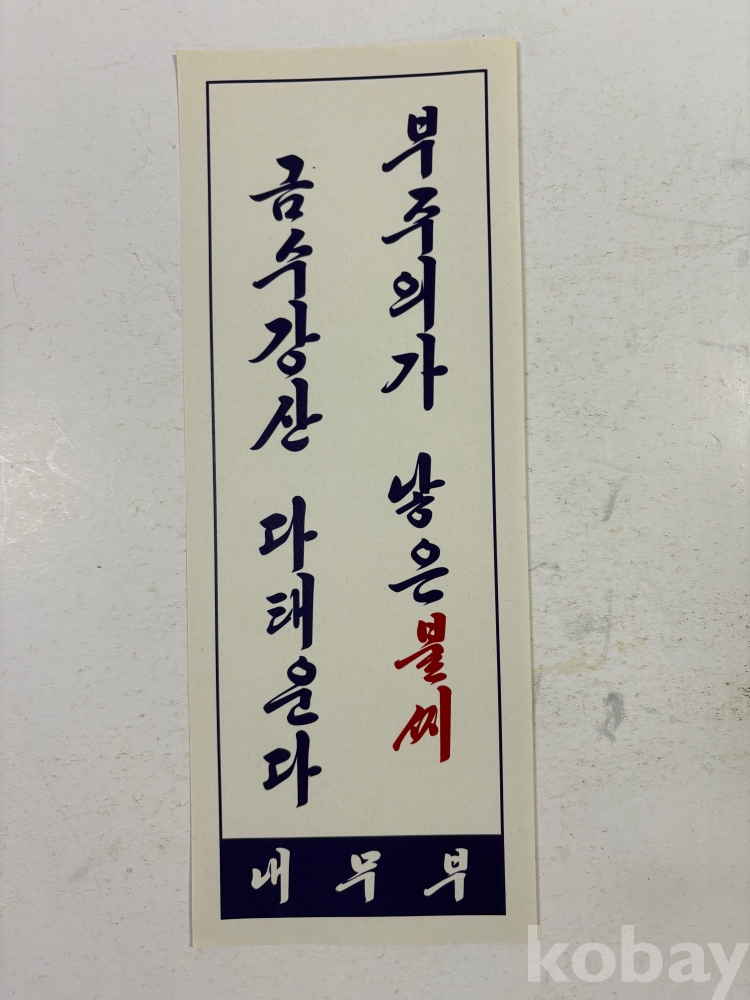 부주의가 낳은 불씨
금수강산 다태운다
내무부
kobay